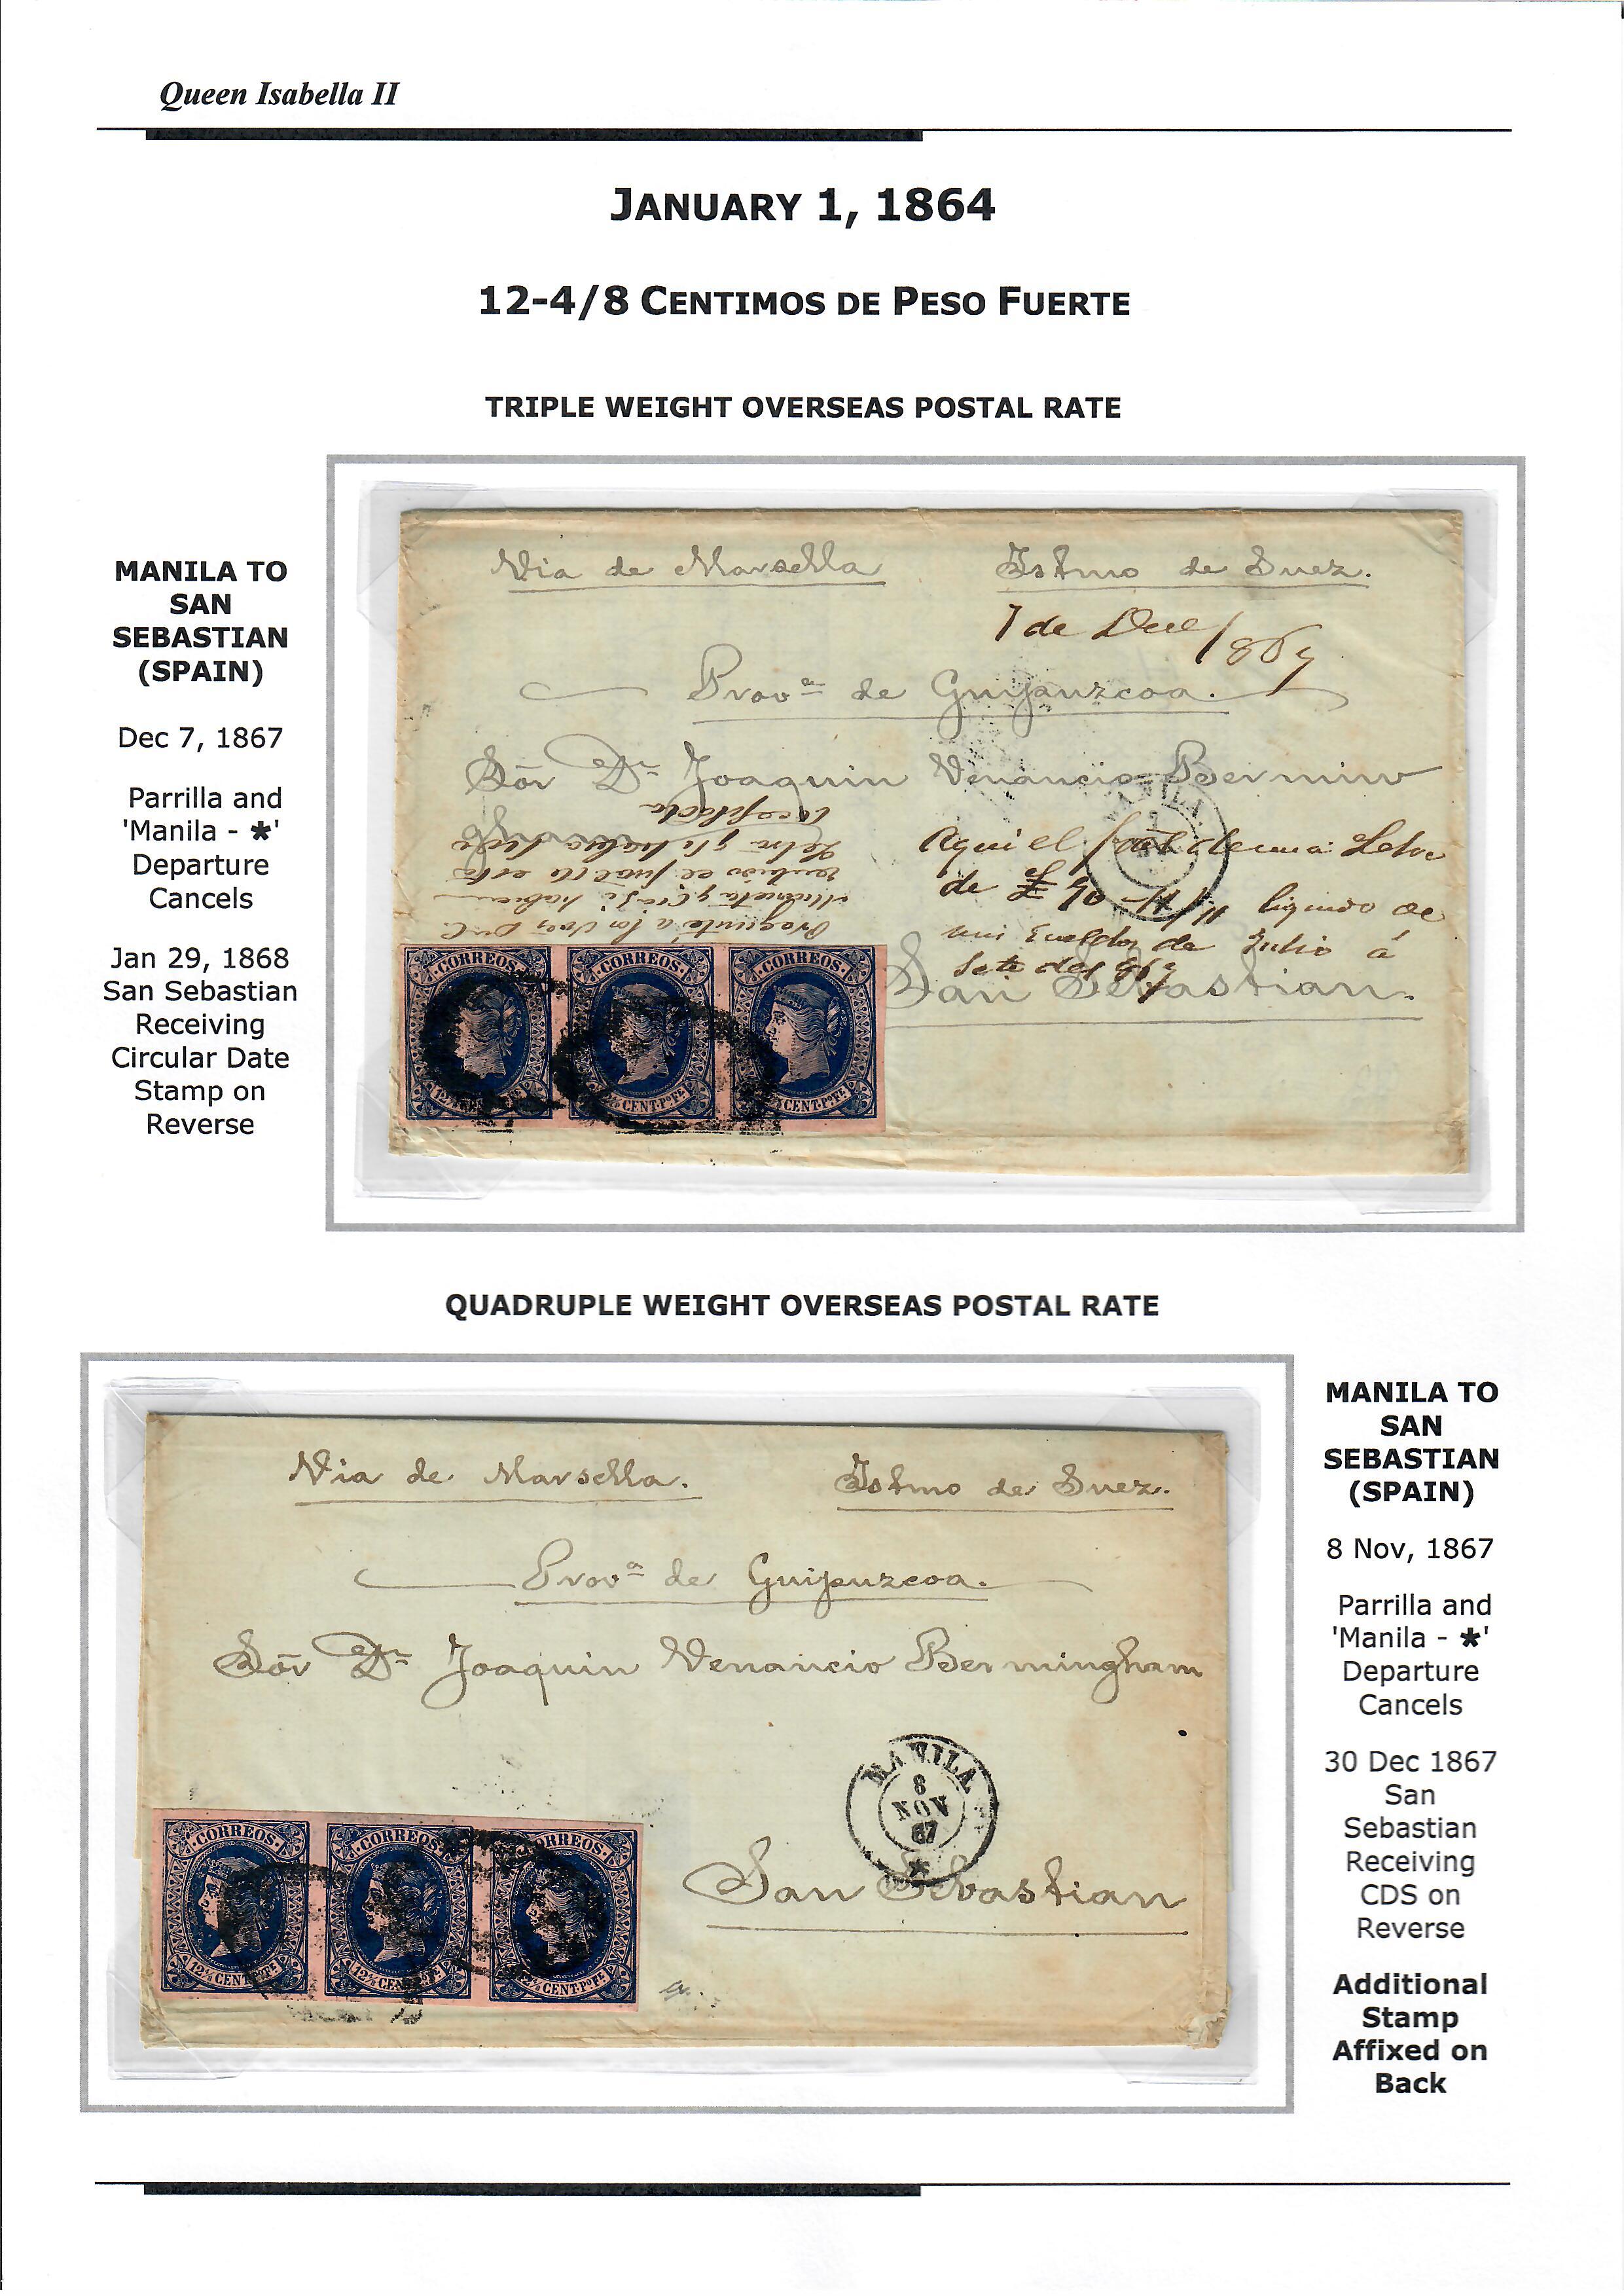 Queen Isabella II
JANUARY 1, 1864
12-4/8 CENTIMOS DE PESO FUERTE
TRIPLE WEIGHT OVERSEAS POSTAL RATE
MANILA TO
SAN
SEBASTIAN
(SPAIN)
Dec 7, 1867
Parrilla and
'Manila - *'
Departure
Cancels
Jan 29, 1868
San Sebastian
Receiving
Circular Date
Stamp on
Reverse
Via de Marsella Istmo de Suez.
7 de
Prov.ª de Guipuzcoa.
Sōr Dn Joaquin Venancio
MANILA
Aqui el de una Letra
de £ 90 liquido de
mis sueldos de Julio á
San Sebastian.
CORREOS CORREOS CORREOS
CENT.Po.Fe. CENT.Po.Fe.
QUADRUPLE WEIGHT OVERSEAS POSTAL RATE
Via de Marsella. Istmo de Suez.
Prov.ª de Guipuzcoa.
Sōr Dn Joaquin Venancio Bermingham
MANILA
8
NOV
67
*
San Sebastian
CORREOS CORREOS CORREOS
12 4/8 CENT.Po.Fe. 12 4/8 CENT.Po.Fe. CENT.Po.Fe.
MANILA TO
SAN
SEBASTIAN
(SPAIN)
8 Nov, 1867
Parrilla and
'Manila - *'
Departure
Cancels
30 Dec 1867
San
Sebastian
Receiving
CDS on
Reverse
Additional
Stamp
Affixed on
Back